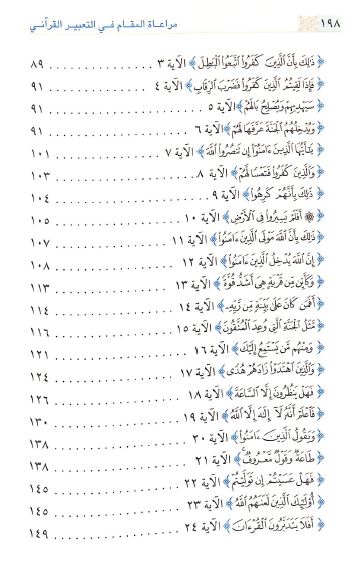 ١٩٨ مراعاة المقام في التعبير القرآني
﴿ذَٰلِكَ بِأَنَّ الَّذِينَ كَفَرُوا اتَّبَعُوا الْبَٰطِلَ﴾ الآية ٣ ........ ٨٩
﴿فَإِذَا لَقِيتُمُ الَّذِينَ كَفَرُوا فَضَرْبَ الرِّقَابِ﴾ الآية ٤ ........ ٩١
﴿سَيَهْدِيهِمْ وَيُصْلِحُ بَالَهُمْ﴾ الآية ٥ ........ ٩١
﴿وَيُدْخِلُهُمُ الْجَنَّةَ عَرَّفَهَا لَهُمْ﴾ الآية ٦ ........ ٩١
﴿يَٰأَيُّهَا الَّذِينَ ءَامَنُوا إِن تَنصُرُوا اللَّهَ﴾ الآية ٧ ........ ١٠١
﴿وَالَّذِينَ كَفَرُوا فَتَعْسًا لَّهُمْ﴾ الآية ٨ ........ ١٠٣
﴿ذَٰلِكَ بِأَنَّهُمْ كَرِهُوا﴾ الآية ٩ ........ ١٠٤
﴿۞ أَفَلَمْ يَسِيرُوا فِي الْأَرْضِ﴾ الآية ١٠ ........ ١٠٥
﴿ذَٰلِكَ بِأَنَّ اللَّهَ مَوْلَى الَّذِينَ ءَامَنُوا﴾ الآية ١١ ........ ١٠٧
﴿إِنَّ اللَّهَ يُدْخِلُ الَّذِينَ ءَامَنُوا﴾ الآية ١٢ ........ ١٠٨
﴿وَكَأَيِّن مِّن قَرْيَةٍ هِيَ أَشَدُّ قُوَّةً﴾ الآية ١٣ ........ ١١٣
﴿أَفَمَن كَانَ عَلَىٰ بَيِّنَةٍ مِّن رَّبِّهِ﴾ الآية ١٤ ........ ١١٤
﴿مَّثَلُ الْجَنَّةِ الَّتِي وُعِدَ الْمُتَّقُونَ﴾ الآية ١٥ ........ ١١٦
﴿وَمِنْهُم مَّن يَسْتَمِعُ إِلَيْكَ﴾ الآية ١٦ ........ ١٢١
﴿وَالَّذِينَ اهْتَدَوْا زَادَهُمْ هُدًى﴾ الآية ١٧ ........ ١٢٤
﴿فَهَلْ يَنظُرُونَ إِلَّا السَّاعَةَ﴾ الآية ١٨ ........ ١٢٦
﴿فَاعْلَمْ أَنَّهُ لَا إِلَٰهَ إِلَّا اللَّهُ﴾ الآية ١٩ ........ ١٣٠
﴿وَيَقُولُ الَّذِينَ ءَامَنُوا﴾ الآية ٢٠ ........ ١٣٨
﴿طَاعَةٌ وَقَوْلٌ مَّعْرُوفٌ﴾ الآية ٢١ ........ ١٣٨
﴿فَهَلْ عَسَيْتُمْ إِن تَوَلَّيْتُمْ﴾ الآية ٢٢ ........ ١٤٥
﴿أُولَٰئِكَ الَّذِينَ لَعَنَهُمُ اللَّهُ﴾ الآية ٢٣ ........ ١٤٥
﴿أَفَلَا يَتَدَبَّرُونَ الْقُرْءَانَ﴾ الآية ٢٤ ........ ١٤٩